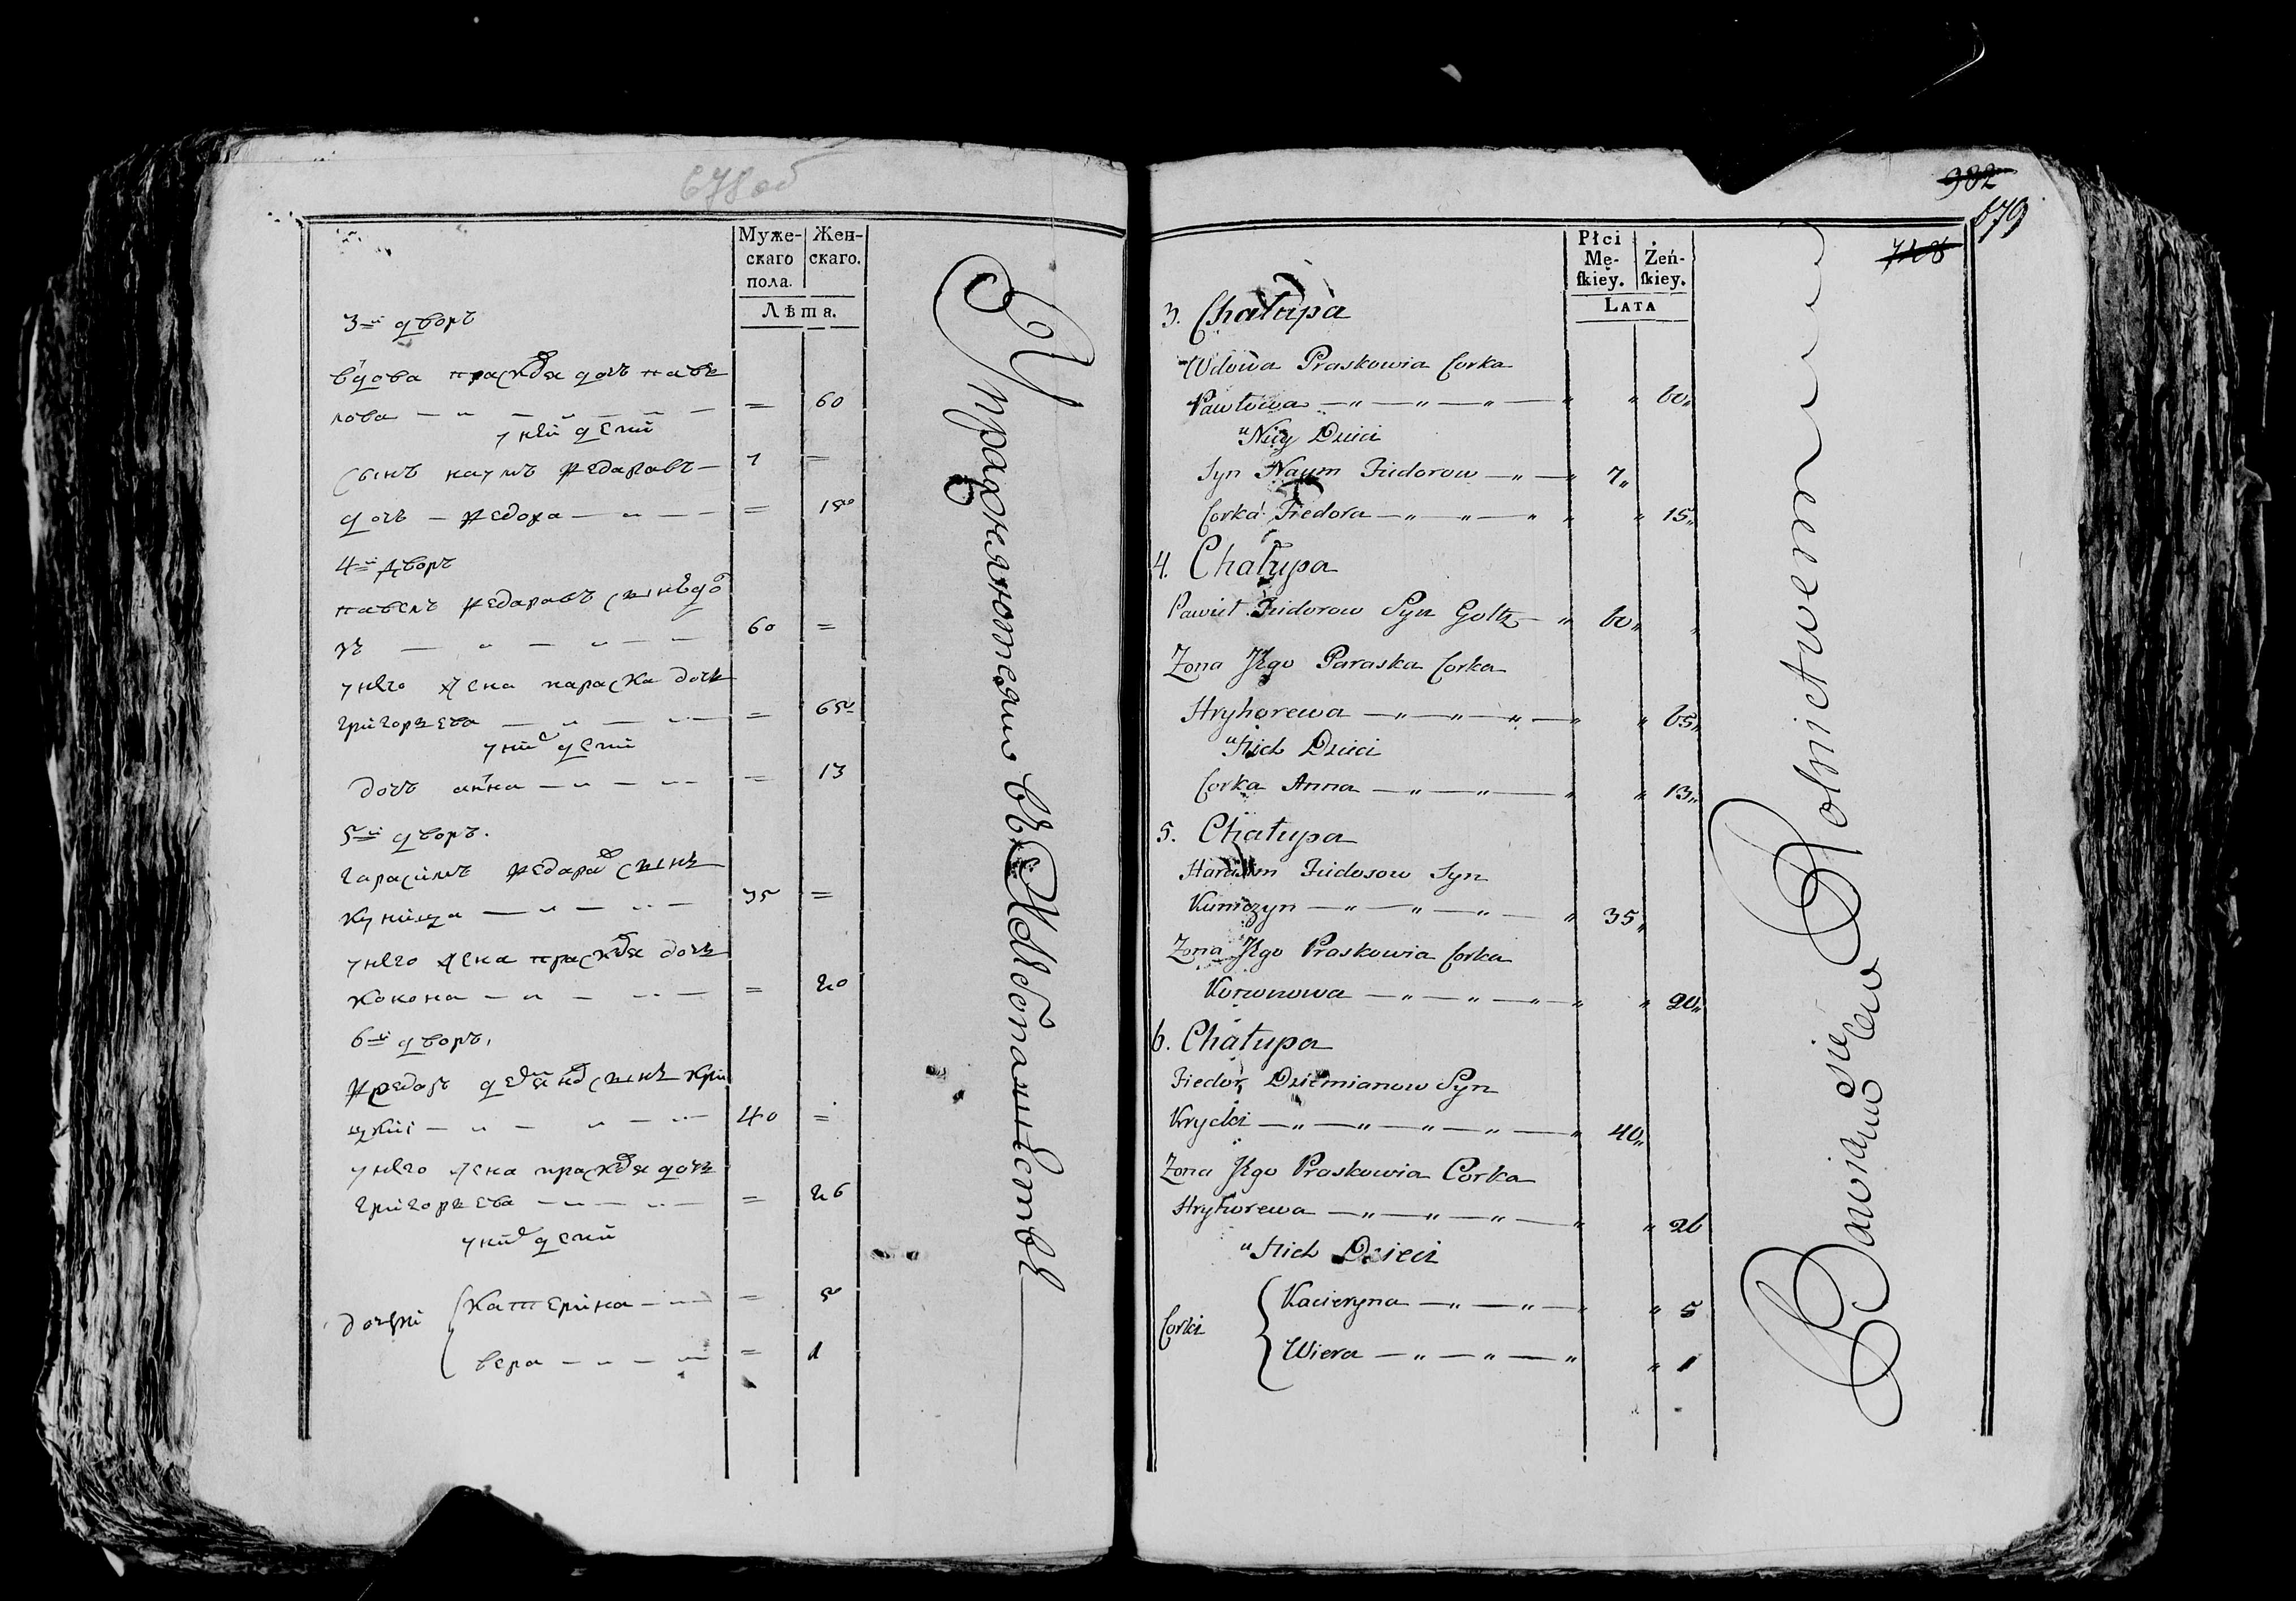 678 об
Муже-
скаго
пола.
Жен-
скаго.
Лѣта.
3й дворъ
вдова прасковя дочь пав
лова — „ — „ — „ — = 60
у ней дети
сынъ наумъ федаравъ — 7 =
дочь — федора — „ — = 15
4й дворъ
павелъ федаравъ сынъ
— „ — „ — 60 =
у него жена параска дочь
григорьева — „ — „ — = 65
у них дети
дочь анна — „ — „ — = 13
5й дворъ.
гарасимъ федарав сынъ
куница — „ — „ — 35 =
у него жена прасковя дочь
— „ — „ — = 20
6й дворъ,
федоръ сынъ кри
цкии — „ — „ — „ — 40 =
у него жена прасковя дочь
григорьева — „ — „ — = 26
у них дети
дочери
катерина — „ — = 5
вера — „ — „ — = 1
Упражняются въ Хлебопашестве
982
679
Płci
Mę-
ſkiey.
Żeń-
ſkiey.
LATA
3. Chałupa
Wdowa Praskowia Corka
Pawłowa — „ — „ — „ — „ „ 60„
u Niey Dzieci
Syn Naum Fiedorow — „ — „ 7„
Corka Fiedora — „ „ — „ „ „ 15„
4. Chałupa
Pawieł Fiedorow Syn — „ 60„ „
Zona Jego Paraska Corka
Hryhorewa — „ — „ — „ — „ „ 65„
u Nich Dzieci
Corka Anna — „ — „ — „ „ 13„
5. Chałupa
Harasim Fiedorow Syn
Kuniczyn — „ — „ — „ — „ 35„
Zona Jego Praskowia Corka
Kononowa — „ — „ — „ — „ „ 20„
6. Chałupa
Fiedor Dziemianow Syn
Krycki — „ — „ — „ — „ — „ 40„
Zona Jego Praskowia Corka
Hryhorewa — „ — „ — „ — „ „ 26
u Nich Dzieci
Corki
Kacieryna — „ — „ — „ „ 5
Wiera — „ — „ — „ „ 1
Bawią się Rolnictwem